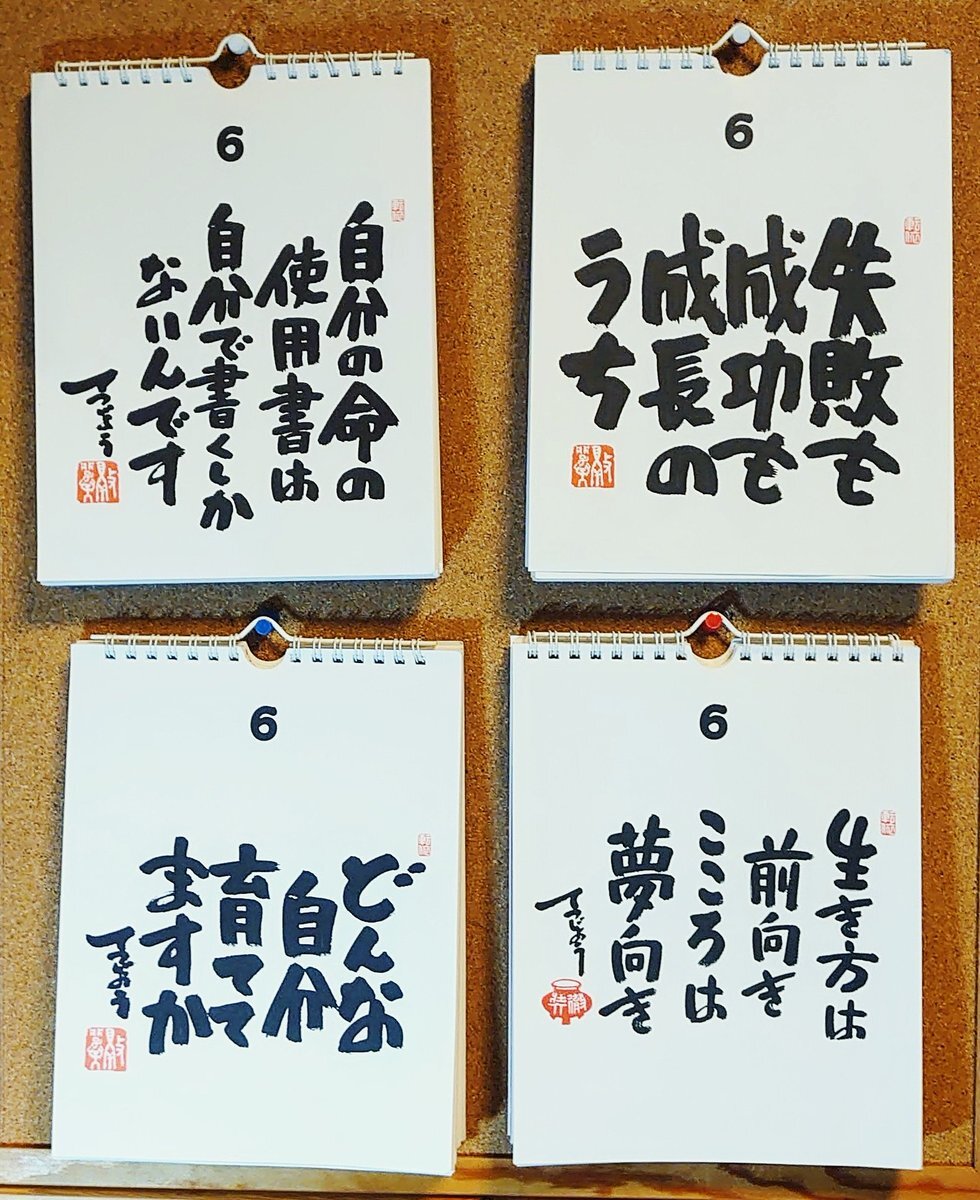 6
自分の命の
使用書は
自分で書くしか
ないんです
てつじょう
6
失敗も
成功も
成長の
うち
6
どんな
自分
育てて
ますか
てつじょう
6
生き方は
前向き
こころは
夢向き
てつじょう